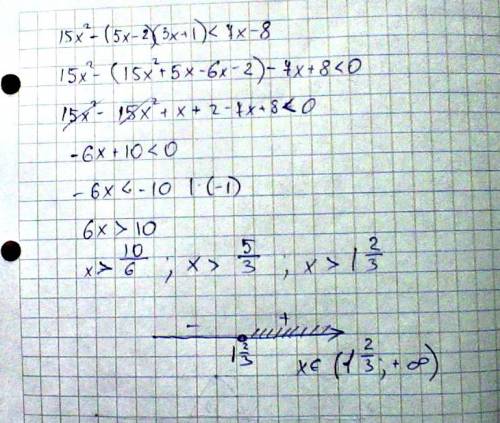 15x² - (5x-2)(3x+1) < 7x-8
15x² - (15x²+5x-6x-2) - 7x+8<0
15x² - 15x² + x + 2 - 7x + 8 < 0
-6x + 10 < 0
-6x < -10 | · (-1)
6x > 10
x > 10/6 ; x > 5/3 ; x > 1 2/3
- +
1 2/3
x ∈ (1 2/3; +∞)